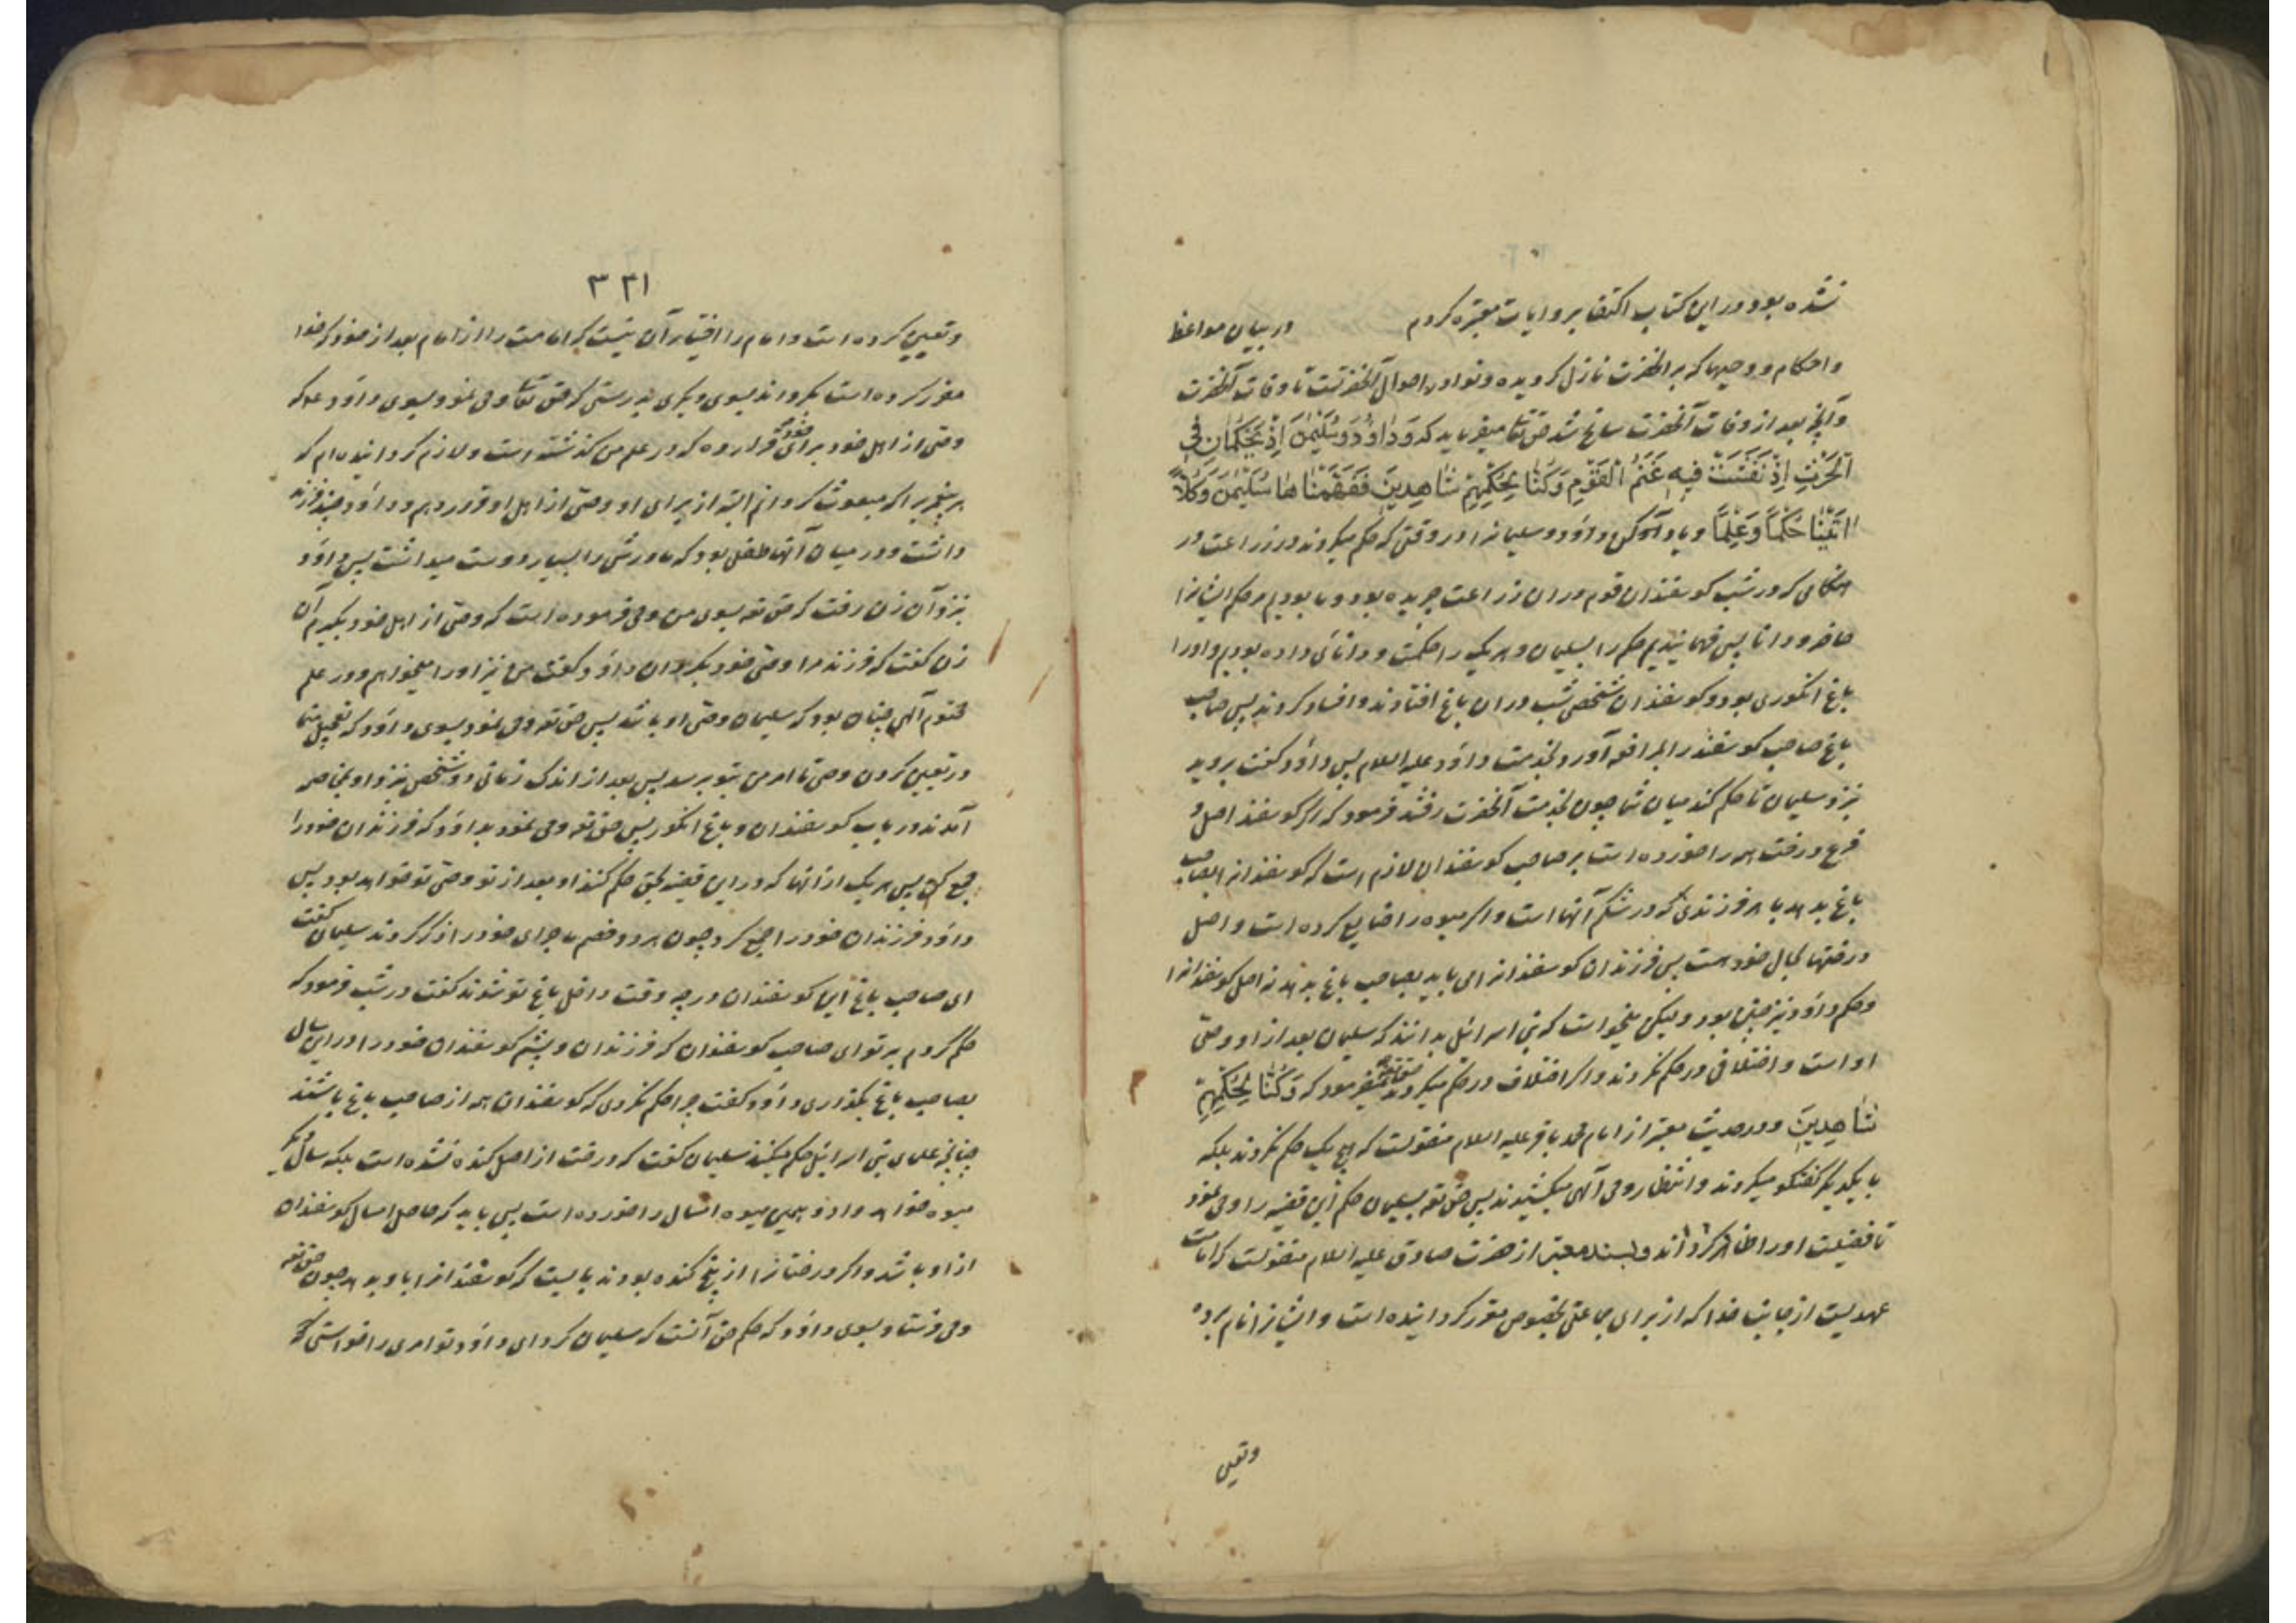 نشده بود در این کتاب اکتفا بروایات معتبره کردم در بیان مواعظ
واحکام و وحیها که بر آنحضرت نازل کردیده ونوادر احوال آنحضرتست تا وفات آنحضرت
وآنچه بعد از وفات آنحضرت سانح شد حق تعا میفرماید که وَدٰاوُدَ وَسُلَیْمٰنَ اِذْ یَحْکُمٰانِ فِی
الْحَرْثِ اِذْ نَفَشَتْ فِیهِ غَنَمُ الْقَوْمِ وَکُنّٰا لِحُکْمِهِمْ شٰاهِدِینَ فَفَهَّمْنٰاهٰا سُلَیْمٰنَ وَکُلّاً
اٰتَیْنٰا حُکْماً وَعِلْماً ویاد کن داود وسلیمانرا در وقتی که حکم میکردند در زراعت در
هنکامی که در شب کوسفندان قوم در ان زراعت چریده بود وما بودیم مر حکم ایشانرا
حاضر ودانا پس فهمانیدیم حکم را بسلیمان وهر یک را حکمت ودانائی داده بودیم واورا
باغ انکوری بود وکوسفندان شخصی شب در ان باغ افتادند وافساد کردند پس صاحب
باغ صاحب کوسفند را بمرافعه آورد بخدمت داود علیه السلام پس داود کفت بروید
نزد سلیمان تا حکم کند میان شما چون بخدمت آنحضرت رفتند فرمود که اکر کوسفند اصل و
فرع درخت همه را خورده است بر صاحب کوسفندان لازم است که کوسفندانرا بصاحب
باغ بدهد با هر فرزندی که در شکم آنها است واکر میوه را ضایع کرده است واصل
درختها بحال خود هست پس فرزندان کوسفندانرا می باید بصاحب باغ بدهد نه اصل کوسفندانرا
وحکم داود نیز چنین بود ولیکن میخواست که بنی اسرائیل بدانند که سلیمان بعد از او وصی
او است واختلافی در حکم نکردند واکر اختلاف در حکم میکردند میفرمود که وَکُنّٰا لِحُکْمِهِمْ
شٰاهِدِینَ ودر حدیث معتبر از امام محمد باقر علیه السلام منقولست که هیچ یک حکم نکردند بلکه
با یکدیکر کفتکو میکردند وانتظار وحی آلهی میکشیدند پس حق تعه بسلیمان حکم این قضیه را وحی نمود
تا فضیلت اورا ظاهر کرداند وبسند معتبر از حضرت صادق علیه السلام منقولست که امامت
عهدیست از جانب خدا که از برای جماعتی بخصوص مقرر کردانیده است وایشانرا نام برده
وتعیین
۳۴۱
وتعیین کرده است وامام را اختیار آن نیست که امامت را از امام بعد از خود که خدا
مقرر کرده است بکرداند بسوی دیکری بدرستی که حق تعا وحی نمود بسوی داود ع که
وصی از اهل خود برای خود قرار ده که در علم من کذشته است ولازم کردانیده ام که
هر پیغمبر را که مبعوث کردانم البته از برای او وصی از اهل او قرار دهم وداود چند فرزند
داشت ودر میان آنها طفلی بود که مادرش را بسیار دوست میداشت پس داود
نزد آن زن رفت که حق تعه بسوی من وحی فرموده است که وصی از اهل خود بکیرم آن
زن کفت که فرزند مرا وصی خود بکردان داود کفت من نیز اورا میخواهم ودر علم
محتوم آلهی چنان بود که سلیمان وصی او باشد پس حق تعه وحی نمود بسوی داود که تعجیل منما
در تعیین کردن وصی تا امر من بتو برسد پس بعد از اندک زمانی دو شخص نزد او بمخاصمه
آمدند در باب کوسفندان وباغ انکور پس حق تعه وحی نمود بداود که فرزندان خود را
جمع کن پس هر یک از آنها که در این قضیه بحق حکم کند او بعد از تو وصی تو خواهد بود پس
داود فرزندان خود را جمع کرد چون هر دو خصم ماجرای خود را ذکر کردند سلیمان کفت
ای صاحب باغ این کوسفندان در چه وقت داخل باغ تو شدند کفت در شب فرمود که
حکم کردم بر تو ای صاحب کوسفندان که فرزندان وپشم کوسفندان خود را در این سال
بصاحب باغ بکذاری داود کفت چرا حکم نکردی که کوسفندان همه از صاحب باغ باشند
چنانچه علمای بنی اسرائیل حکم میکنند سلیمان کفت که درخت از اصل کنده نشده است بلکه سال دیکر
میوه خواهد داد وهمین میوه امسال را خورده است پس باید که حاصل امسال کوسفندان
از او باشد واکر درختانرا از بیخ کنده بودند بایست که کوسفندانرا باو بدهد چون حق تعه
وحی فرستاد بسوی داود که حکم حق آنست که سلیمان کرد ای داود تو امری را خواستی که